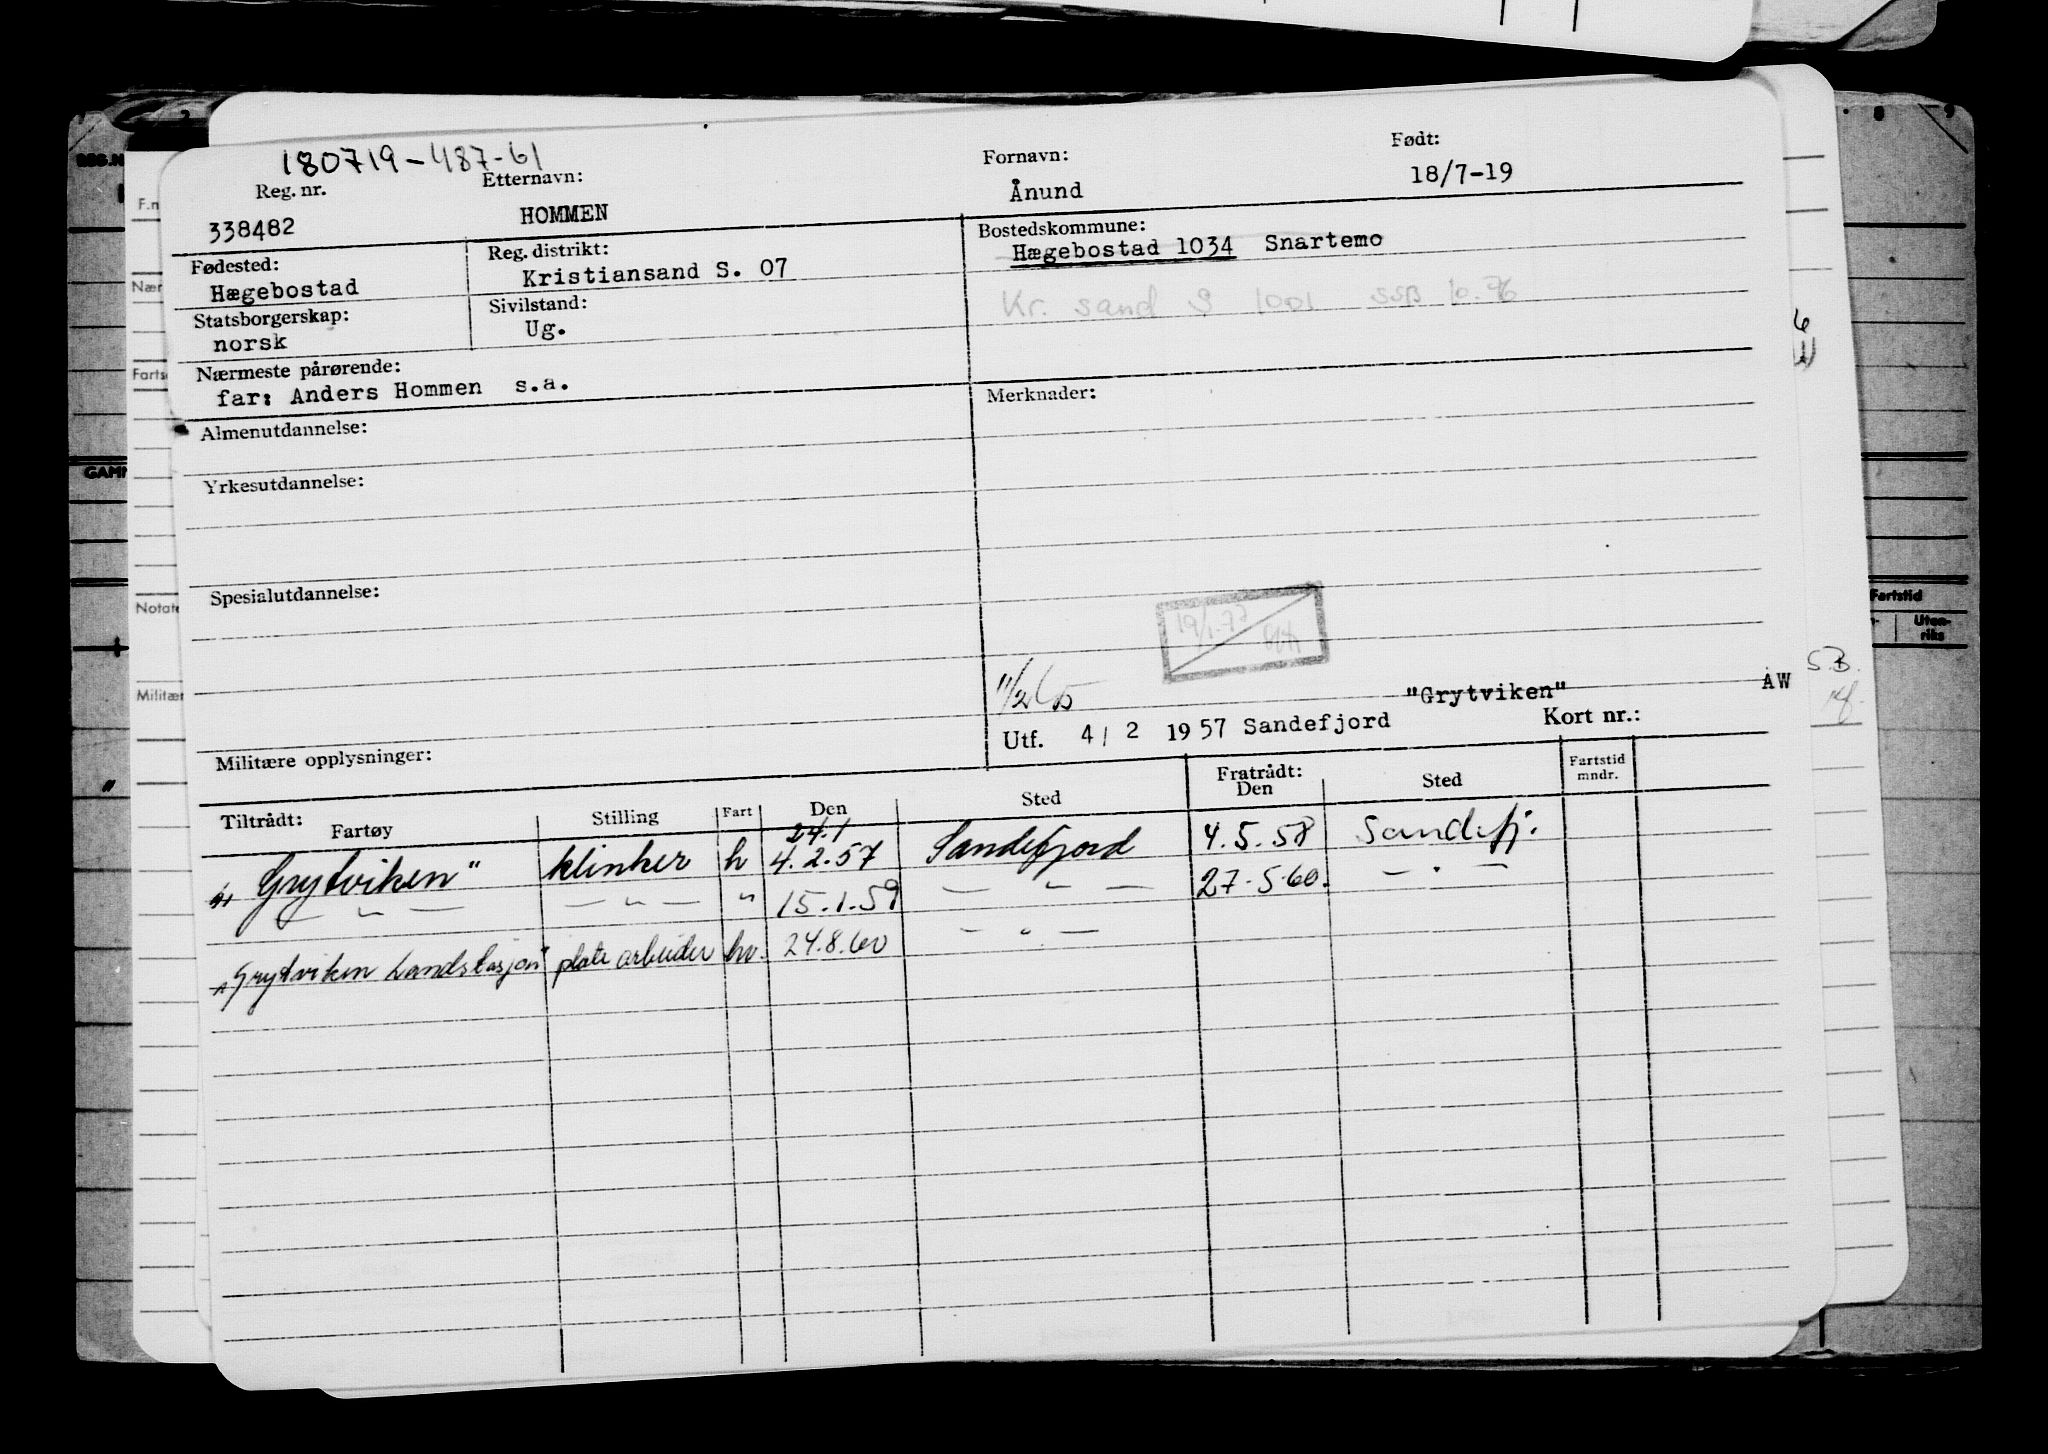 180719-487-61
Reg. nr. Etternavn: Fornavn: Født:
338482 HOMMEN Ånund 18/7-19
Fødested: Reg. distrikt: Bostedskommune:
Hægebostad Kristiansand S. 07 Hægebostad 1034 Snartemo
Statsborgerskap: Sivilstand: Kr. sand S 1001 SSB 10.76
norsk Ug.
Nærmeste pårørende:
far: Anders Hommen s.a. Merknader:
Almenutdannelse:
Yrkesutdannelse:
Spesialutdannelse:
19/1.77
11/2
"Grytviken" AW
Utf. 4/2 1957 Sandefjord Kort nr.:
Militære opplysninger:
Tiltrådt: Fratrådt: Fartstid
Fartøy Stilling Fart Den Sted Den Sted mndr.
24/1
"Grytviken" klinker h 4.2.57 Sandefjord 4.5.58 Sandefj.
— " — — " — " 15.1.59 — " — 27.5.60. — " —
"Grytviken Landstasjon" plate arbeider hv. 24.8.60 — " —
F.n
Nær
Farts
Notate
Militær
GAMM
Fartstid
Uten-
riks
S.B.